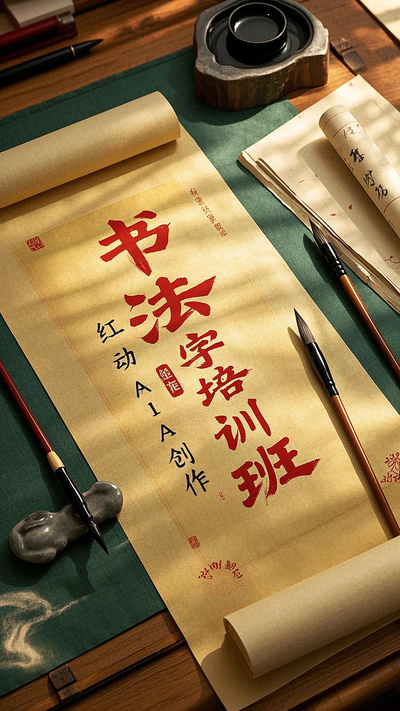 书法字培训班
红动AIA创作